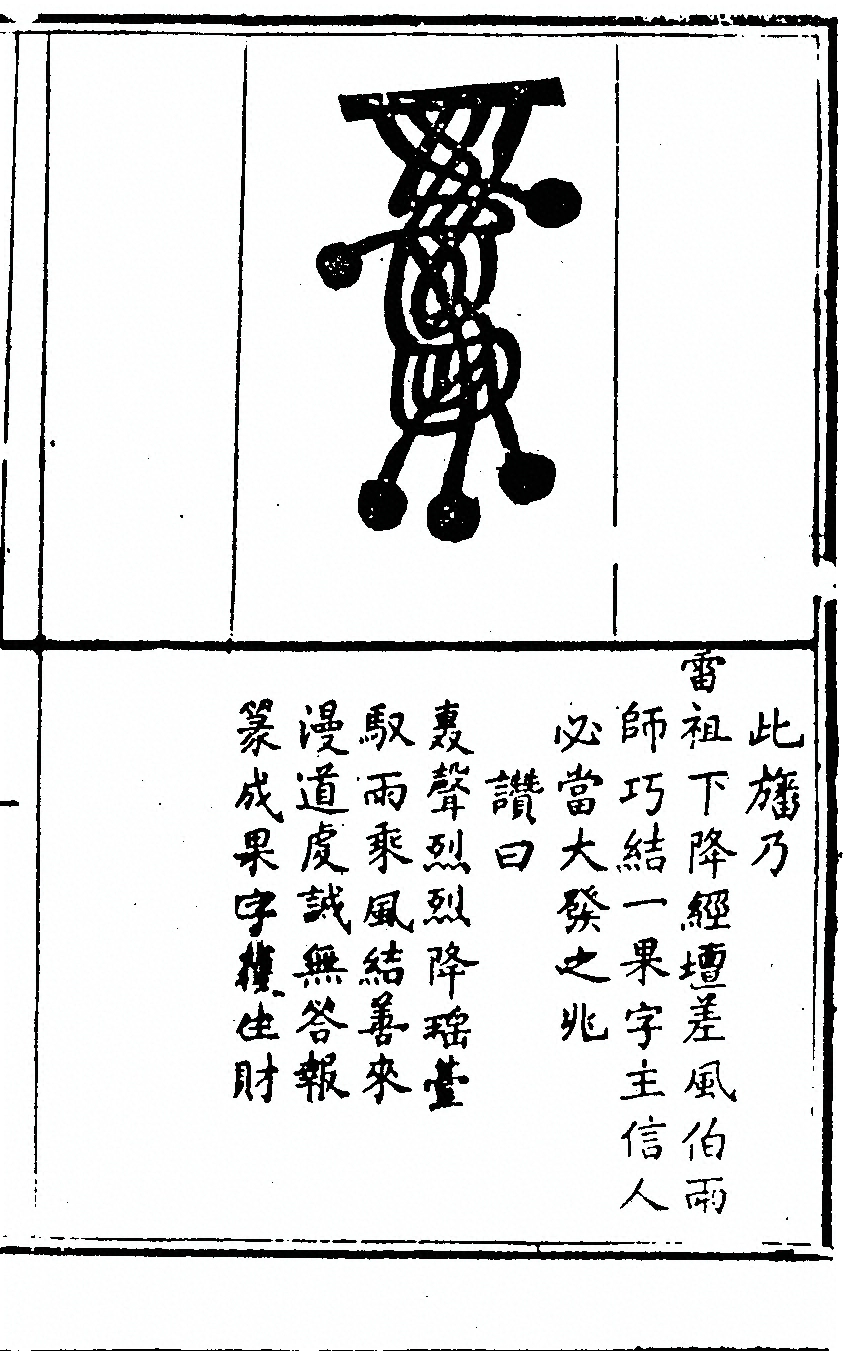 此旛乃
雷祖下降經壇差風伯雨
師巧結一果字主信人
必當大發之兆
讚曰
轟聲烈烈降瑶臺
馭雨乘風結善來
漫道虔誠無答報
篆成果字 生財